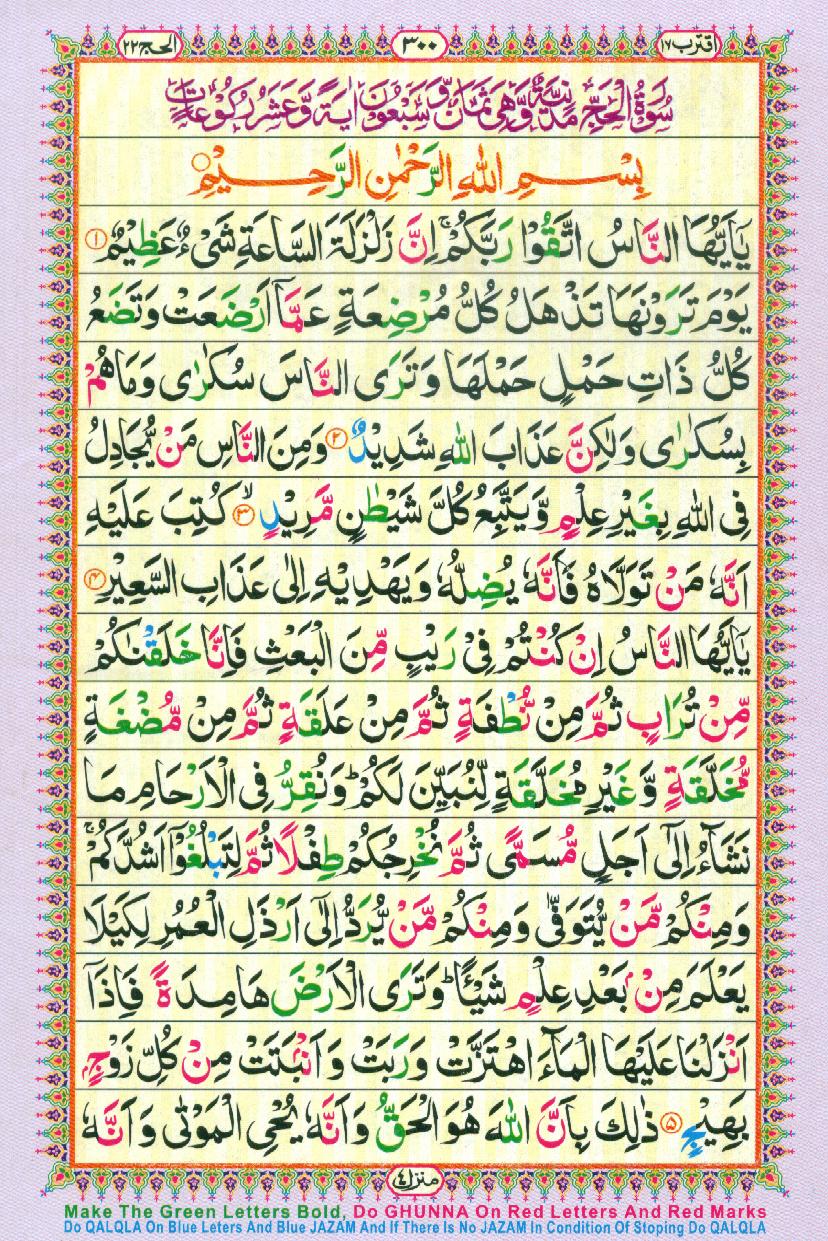 اقترب ١٧ ٣٠٠ الحج ٢٢
سُوْرَةُ الْحَجِّ مَدَنِيَّةٌ وَّهِىَ ثَمَانٌ وَّسَبْعُوْنَ اٰيَةً وَّعَشَرُ رُكُوْعَاتٍ
بِسْمِ اللّٰهِ الرَّحْمٰنِ الرَّحِيْمِ
يٰۤاَيُّهَا النَّاسُ اتَّقُوْا رَبَّكُمْ ۚ اِنَّ زَلْزَلَةَ السَّاعَةِ شَىْءٌ عَظِيْمٌ ①
يَوْمَ تَرَوْنَهَا تَذْهَلُ كُلُّ مُرْضِعَةٍ عَمَّاۤ اَرْضَعَتْ وَتَضَعُ
كُلُّ ذَاتِ حَمْلٍ حَمْلَهَا وَتَرَى النَّاسَ سُكٰرٰى وَمَا هُمْ
بِسُكٰرٰى وَلٰكِنَّ عَذَابَ اللّٰهِ شَدِيْدٌ ② وَمِنَ النَّاسِ مَنْ يُّجَادِلُ
فِى اللّٰهِ بِغَيْرِ عِلْمٍ وَّيَتَّبِعُ كُلَّ شَيْطٰنٍ مَّرِيْدٍ ۙ③ كُتِبَ عَلَيْهِ
اَنَّهٗ مَنْ تَوَلَّاهُ فَاَنَّهٗ يُضِلُّهٗ وَيَهْدِيْهِ اِلٰى عَذَابِ السَّعِيْرِ ④
يٰۤاَيُّهَا النَّاسُ اِنْ كُنْتُمْ فِىْ رَيْبٍ مِّنَ الْبَعْثِ فَاِنَّا خَلَقْنٰكُمْ
مِّنْ تُرَابٍ ثُمَّ مِنْ نُّطْفَةٍ ثُمَّ مِنْ عَلَقَةٍ ثُمَّ مِنْ مُّضْغَةٍ
مُّخَلَّقَةٍ وَّغَيْرِ مُخَلَّقَةٍ لِّنُبَيِّنَ لَكُمْ ؕ وَنُقِرُّ فِى الْاَرْحَامِ مَا
نَشَآءُ اِلٰٓى اَجَلٍ مُّسَمًّى ثُمَّ نُخْرِجُكُمْ طِفْلًا ثُمَّ لِتَبْلُغُوْۤا اَشُدَّكُمْ ۚ
وَمِنْكُمْ مَّنْ يُّتَوَفّٰى وَمِنْكُمْ مَّنْ يُّرَدُّ اِلٰٓى اَرْذَلِ الْعُمُرِ لِكَيْلَا
يَعْلَمَ مِنْۢ بَعْدِ عِلْمٍ شَيْـًٔا ؕ وَتَرَى الْاَرْضَ هَامِدَةً فَاِذَاۤ
اَنْزَلْنَا عَلَيْهَا الْمَآءَ اهْتَزَّتْ وَرَبَتْ وَاَنْۢبَتَتْ مِنْ كُلِّ زَوْجٍۭ
بَهِيْجٍ ⑤ ذٰلِكَ بِاَنَّ اللّٰهَ هُوَ الْحَقُّ وَاَنَّهٗ يُحْىِ الْمَوْتٰى وَاَنَّهٗ
منزل ٤
Make The Green Letters Bold, Do GHUNNA On Red Letters And Red Marks
Do QALQLA On Blue Leters And Blue JAZAM And If There Is No JAZAM In Condition Of Stoping Do QALQLA